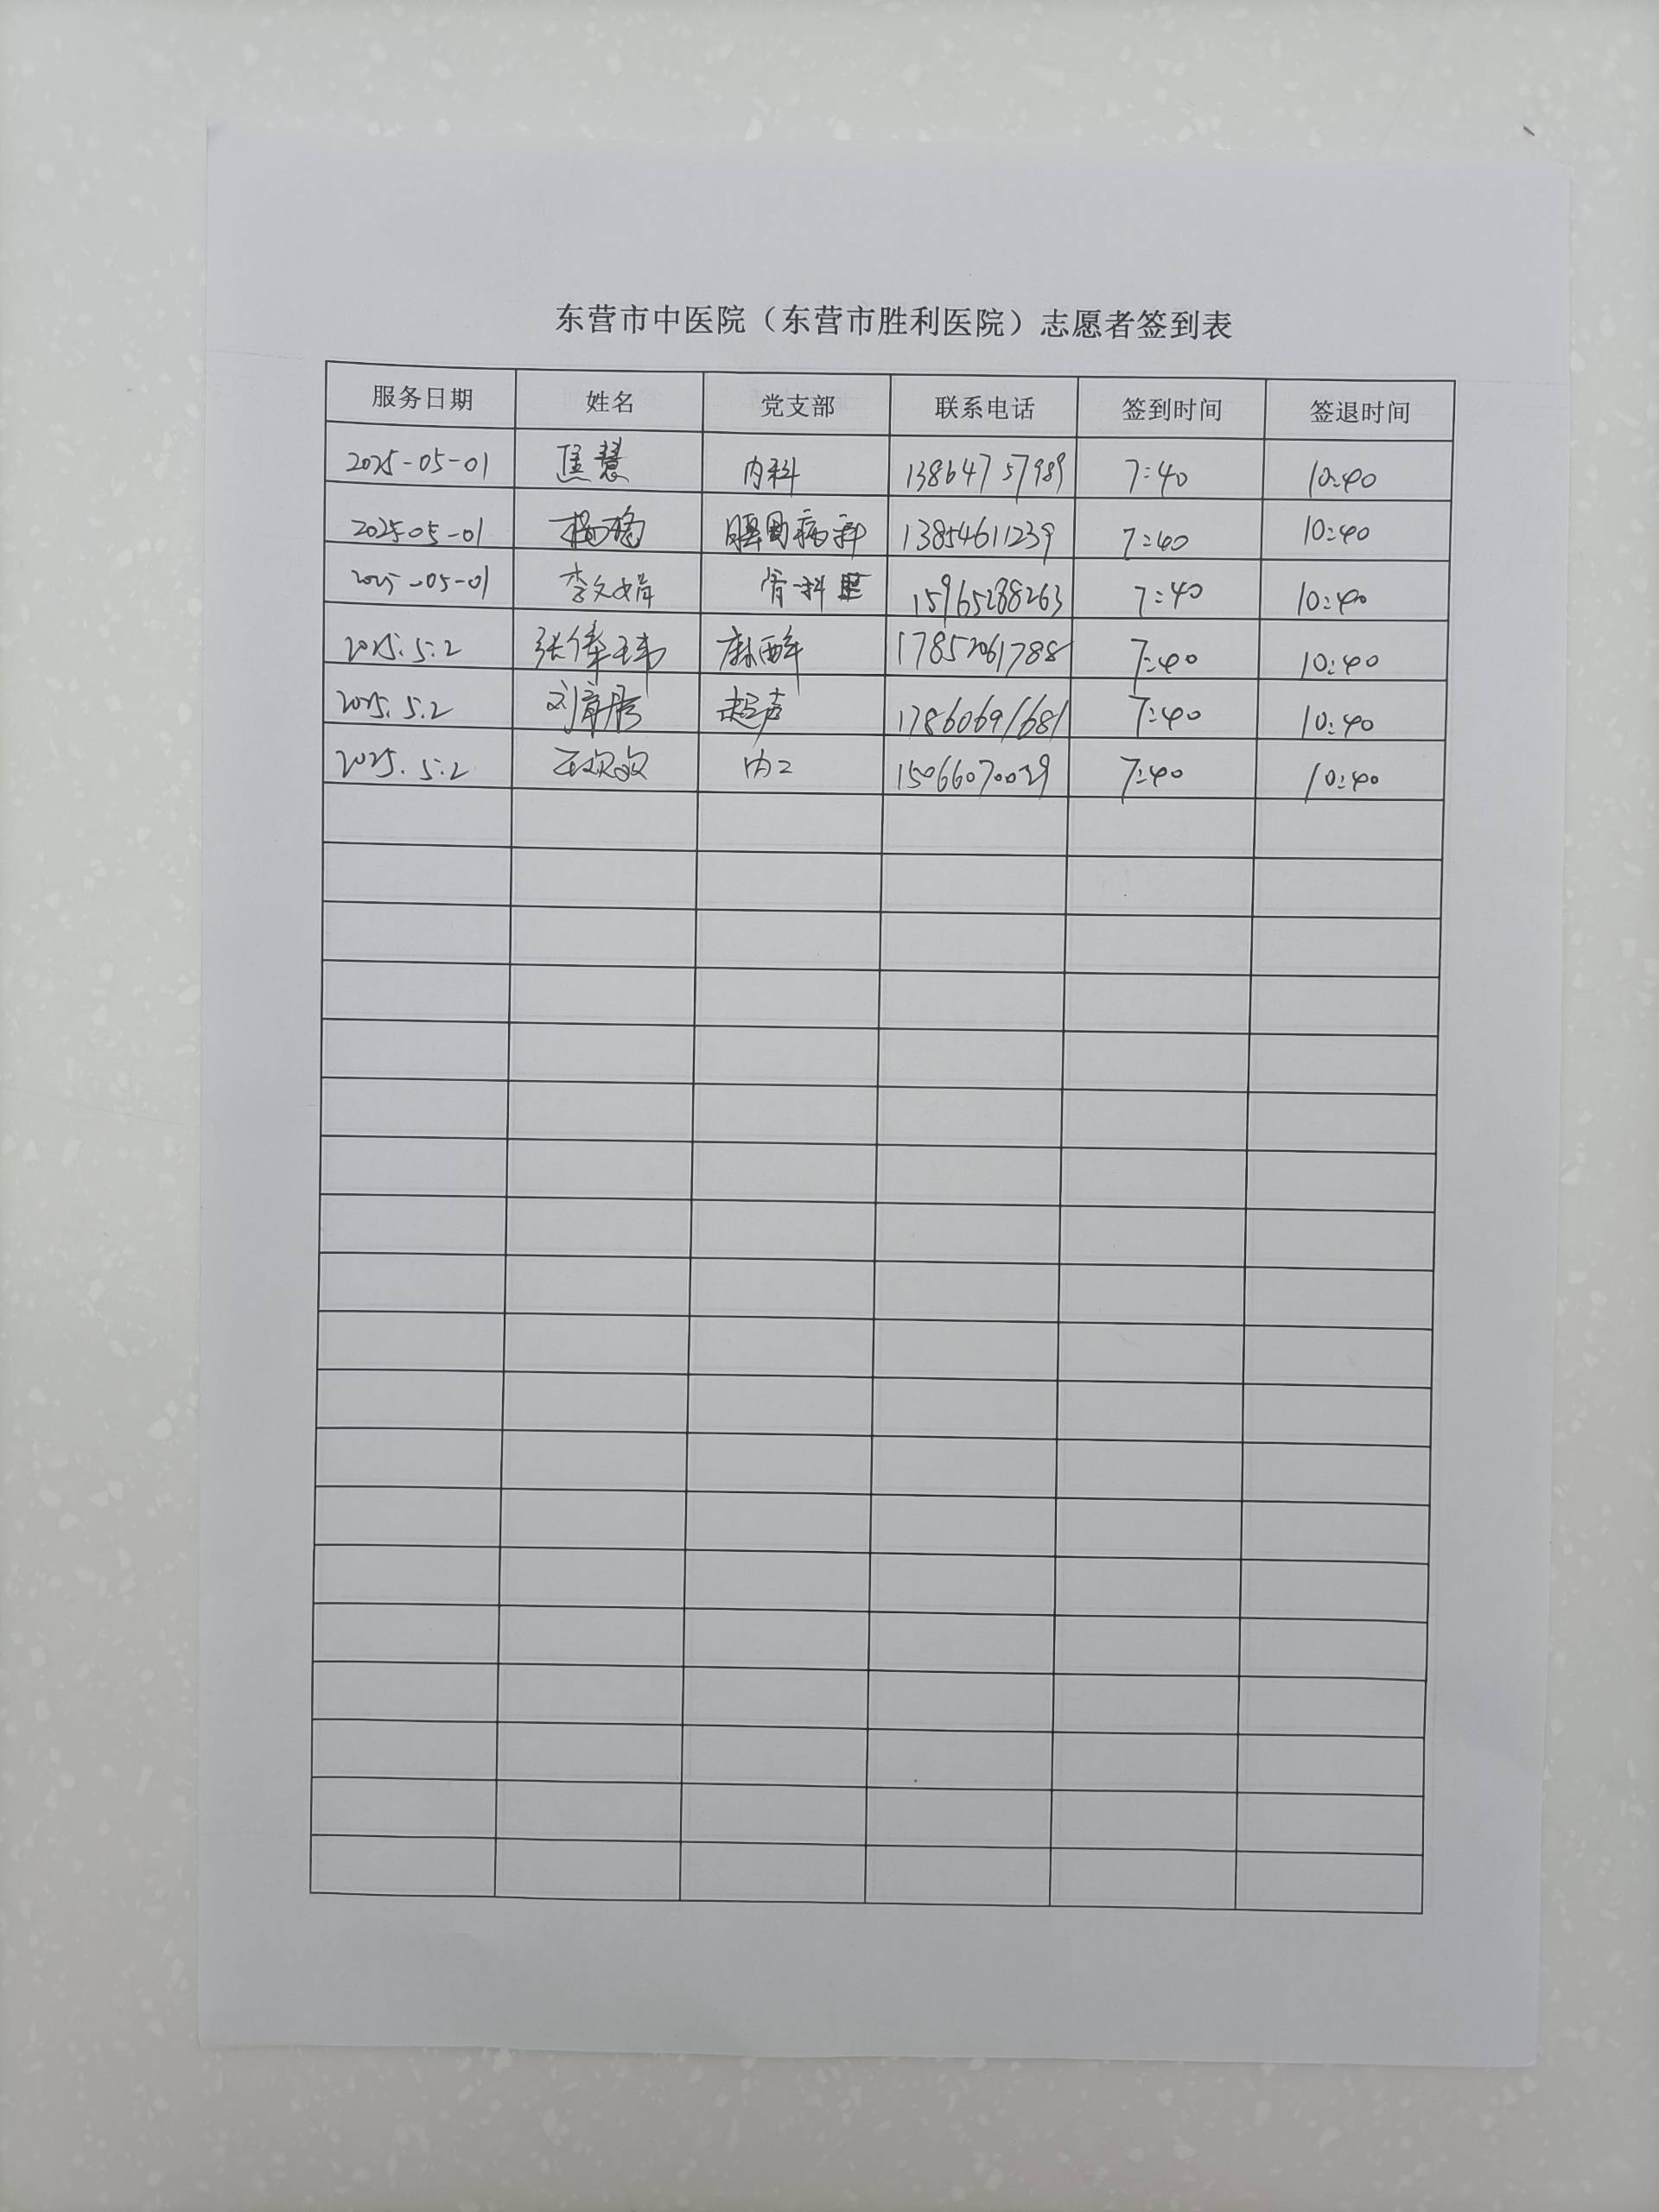 东营市中医院（东营市胜利医院）志愿者签到表
服务日期 姓名 党支部 联系电话 签到时间 签退时间
2025-05-01 匡慧 内科 13864757989 7:40 10:40
2025-05-01 杨 科 13854611239 7:40 10:40
2025-05-01 李文娟 骨科 15965288263 7:40 10:40
2025.5.2 张 麻醉 17852061788 7:40 10:40
2025.5.2 刘 超声 17860691681 7:40 10:40
2025.5.2 王欢欢 内二 15066070029 7:40 10:40